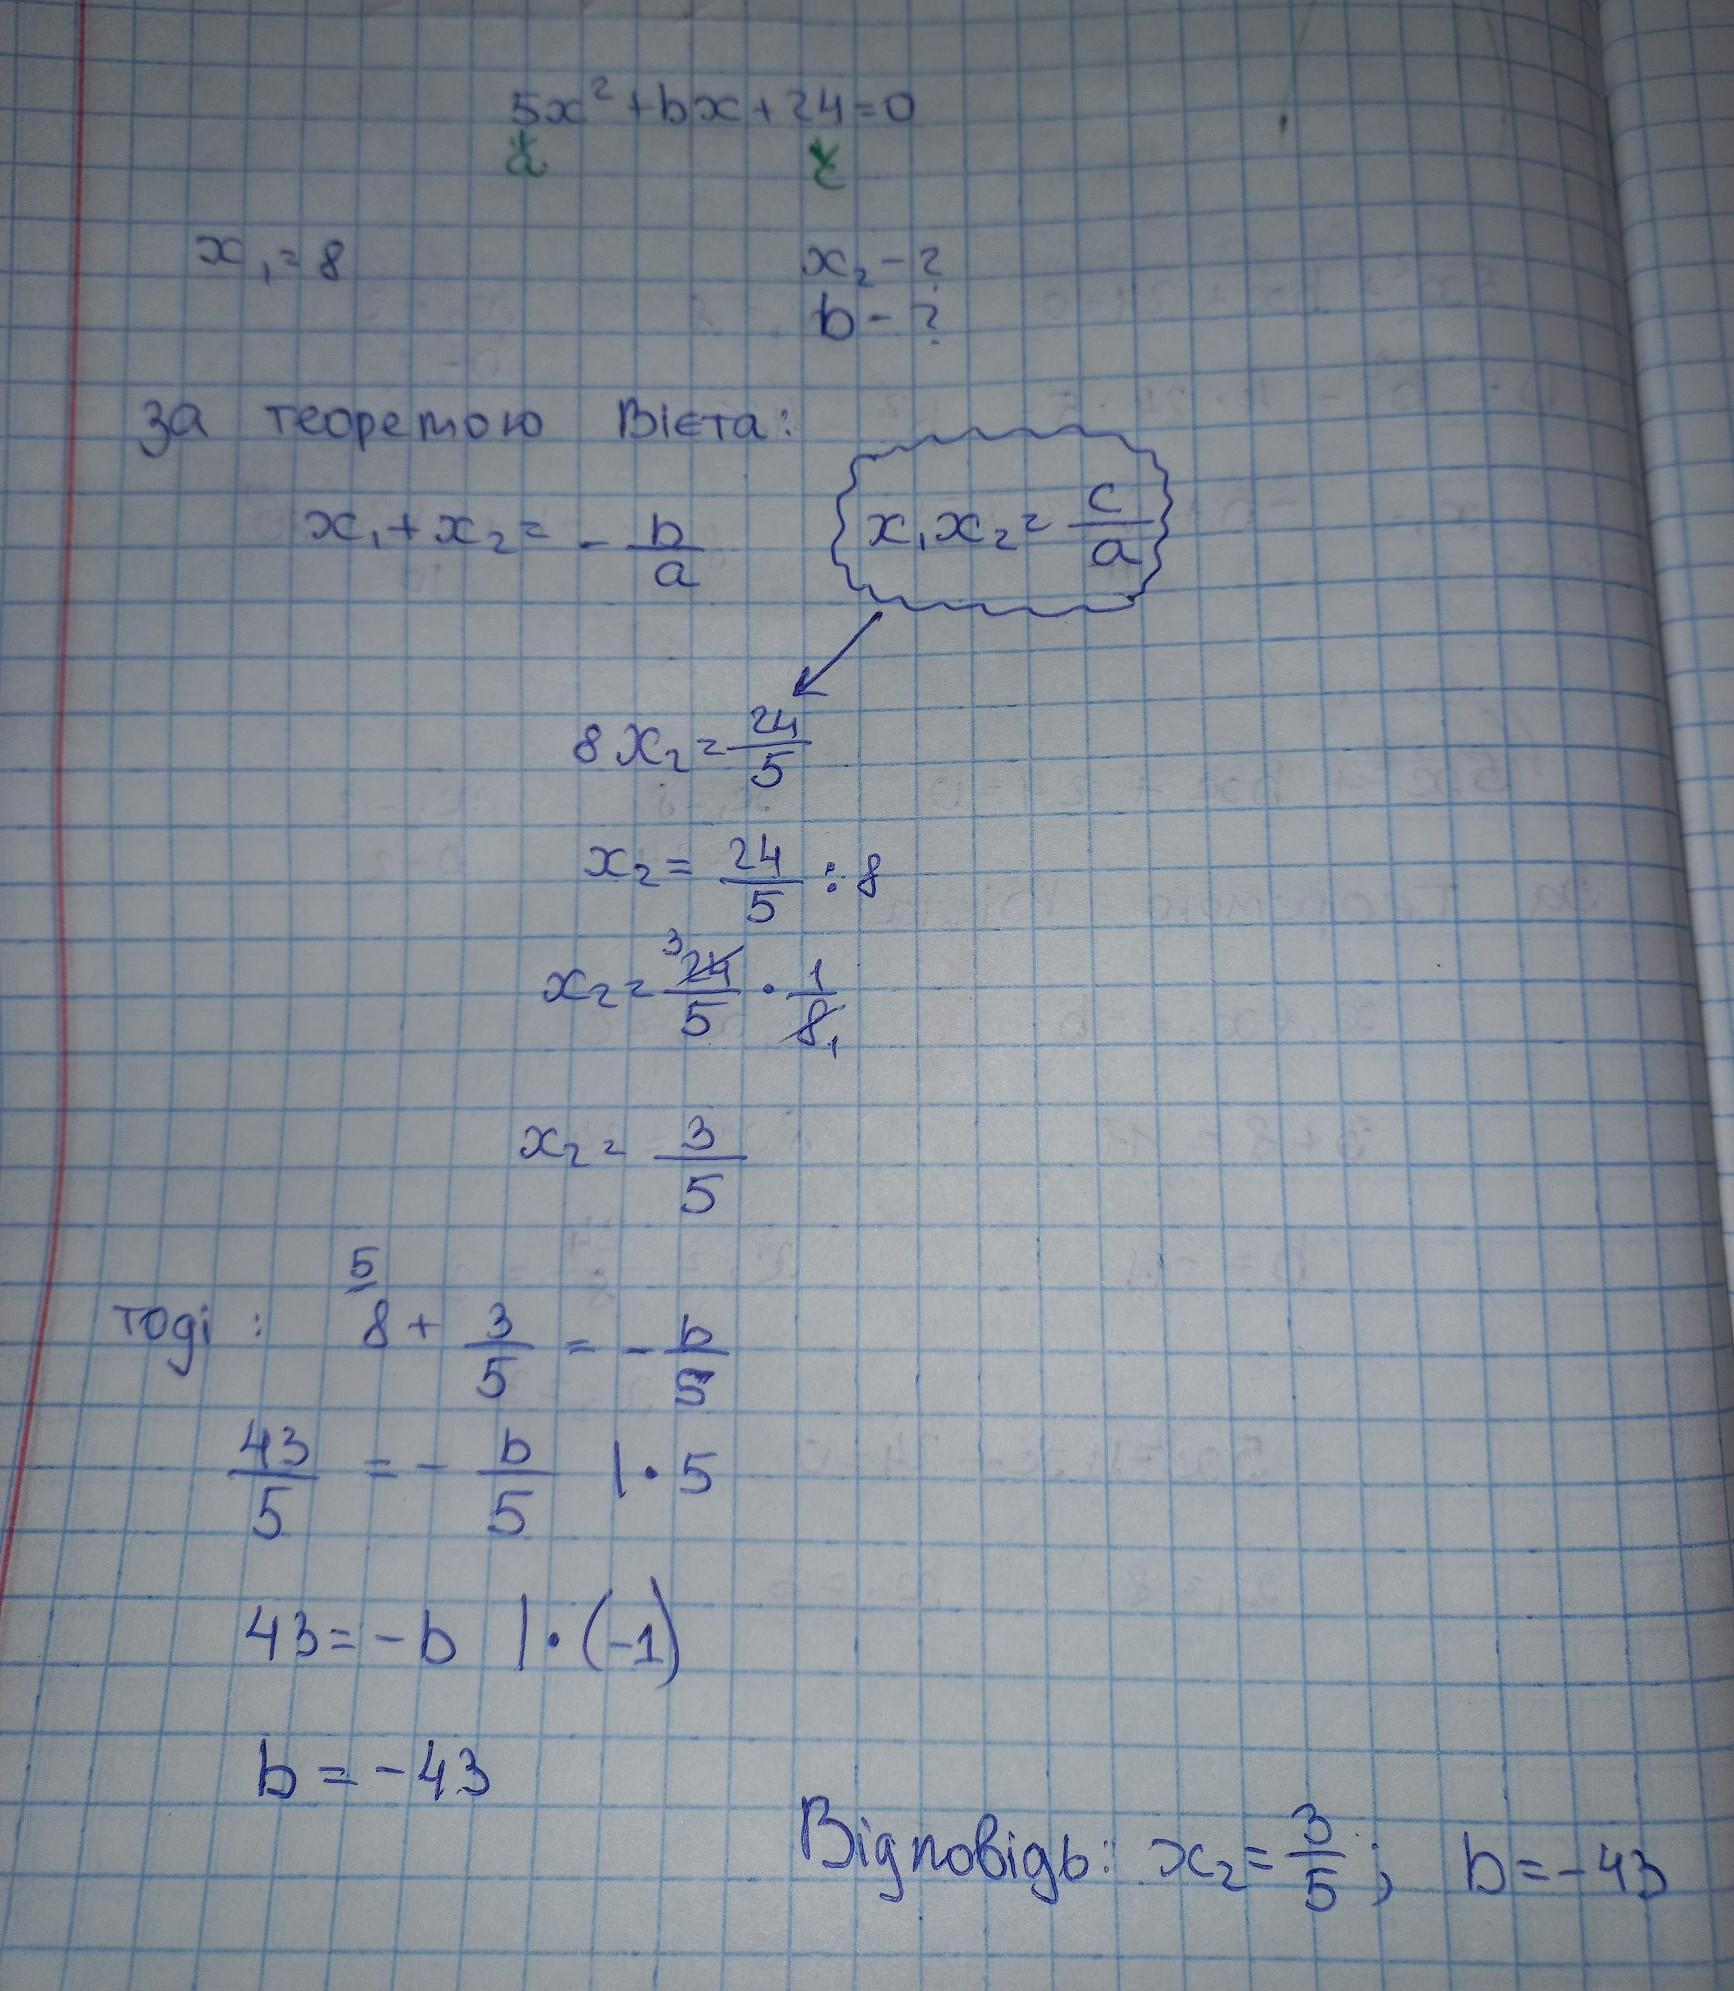 5x² + bx + 24 = 0
a c
x₁ = 8 x₂ - ?
b - ?
За теоремою Вієта:
x₁ + x₂ = - b/a x₁x₂ = c/a
8x₂ = 24/5
x₂ = 24/5 : 8
x₂ = ³24/5 · 1/8₁
x₂ = 3/5
5
тоді: 8 + 3/5 = - b/5
43/5 = - b/5 | · 5
43 = -b | · (-1)
b = -43
Відповідь: x₂ = 3/5; b = -43